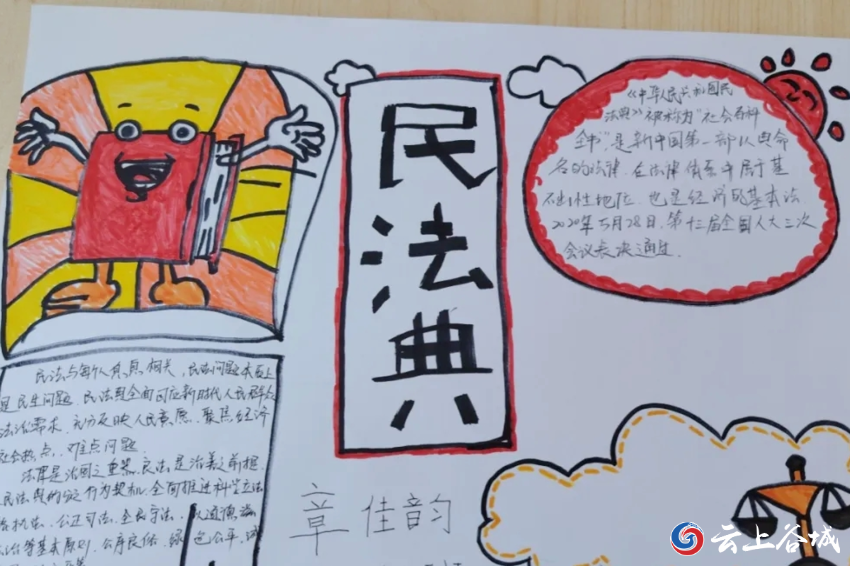 民法典
《中华人民共和国民
法典》被称为“社会百科
全书”是新中国第一部以典命
名的法律.在法律体系中属于基
础性地位.也是经济的基本法
2020年5月28日.第十三届全国人大三次
会议表决通过.
民法与每个人息息相关,民法问题本质上
是民生问题.民法典全面回应新时代人民群众
法治需求.充分反映人民意愿.聚焦经济
社会热点.难点问题
法律是治国之重器.良法是治善之前提.
民法典的 行为契机.全面推进科学立法
严格执法.公正司法.全民守法.
治等基本原则.公序良俗.绿色公平.诚
章佳韵
云上谷城